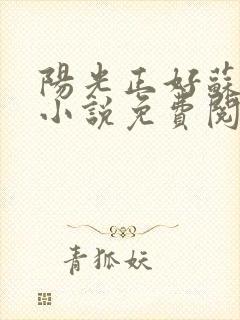 陽光正好蘇
小說免費閱
青狐妖